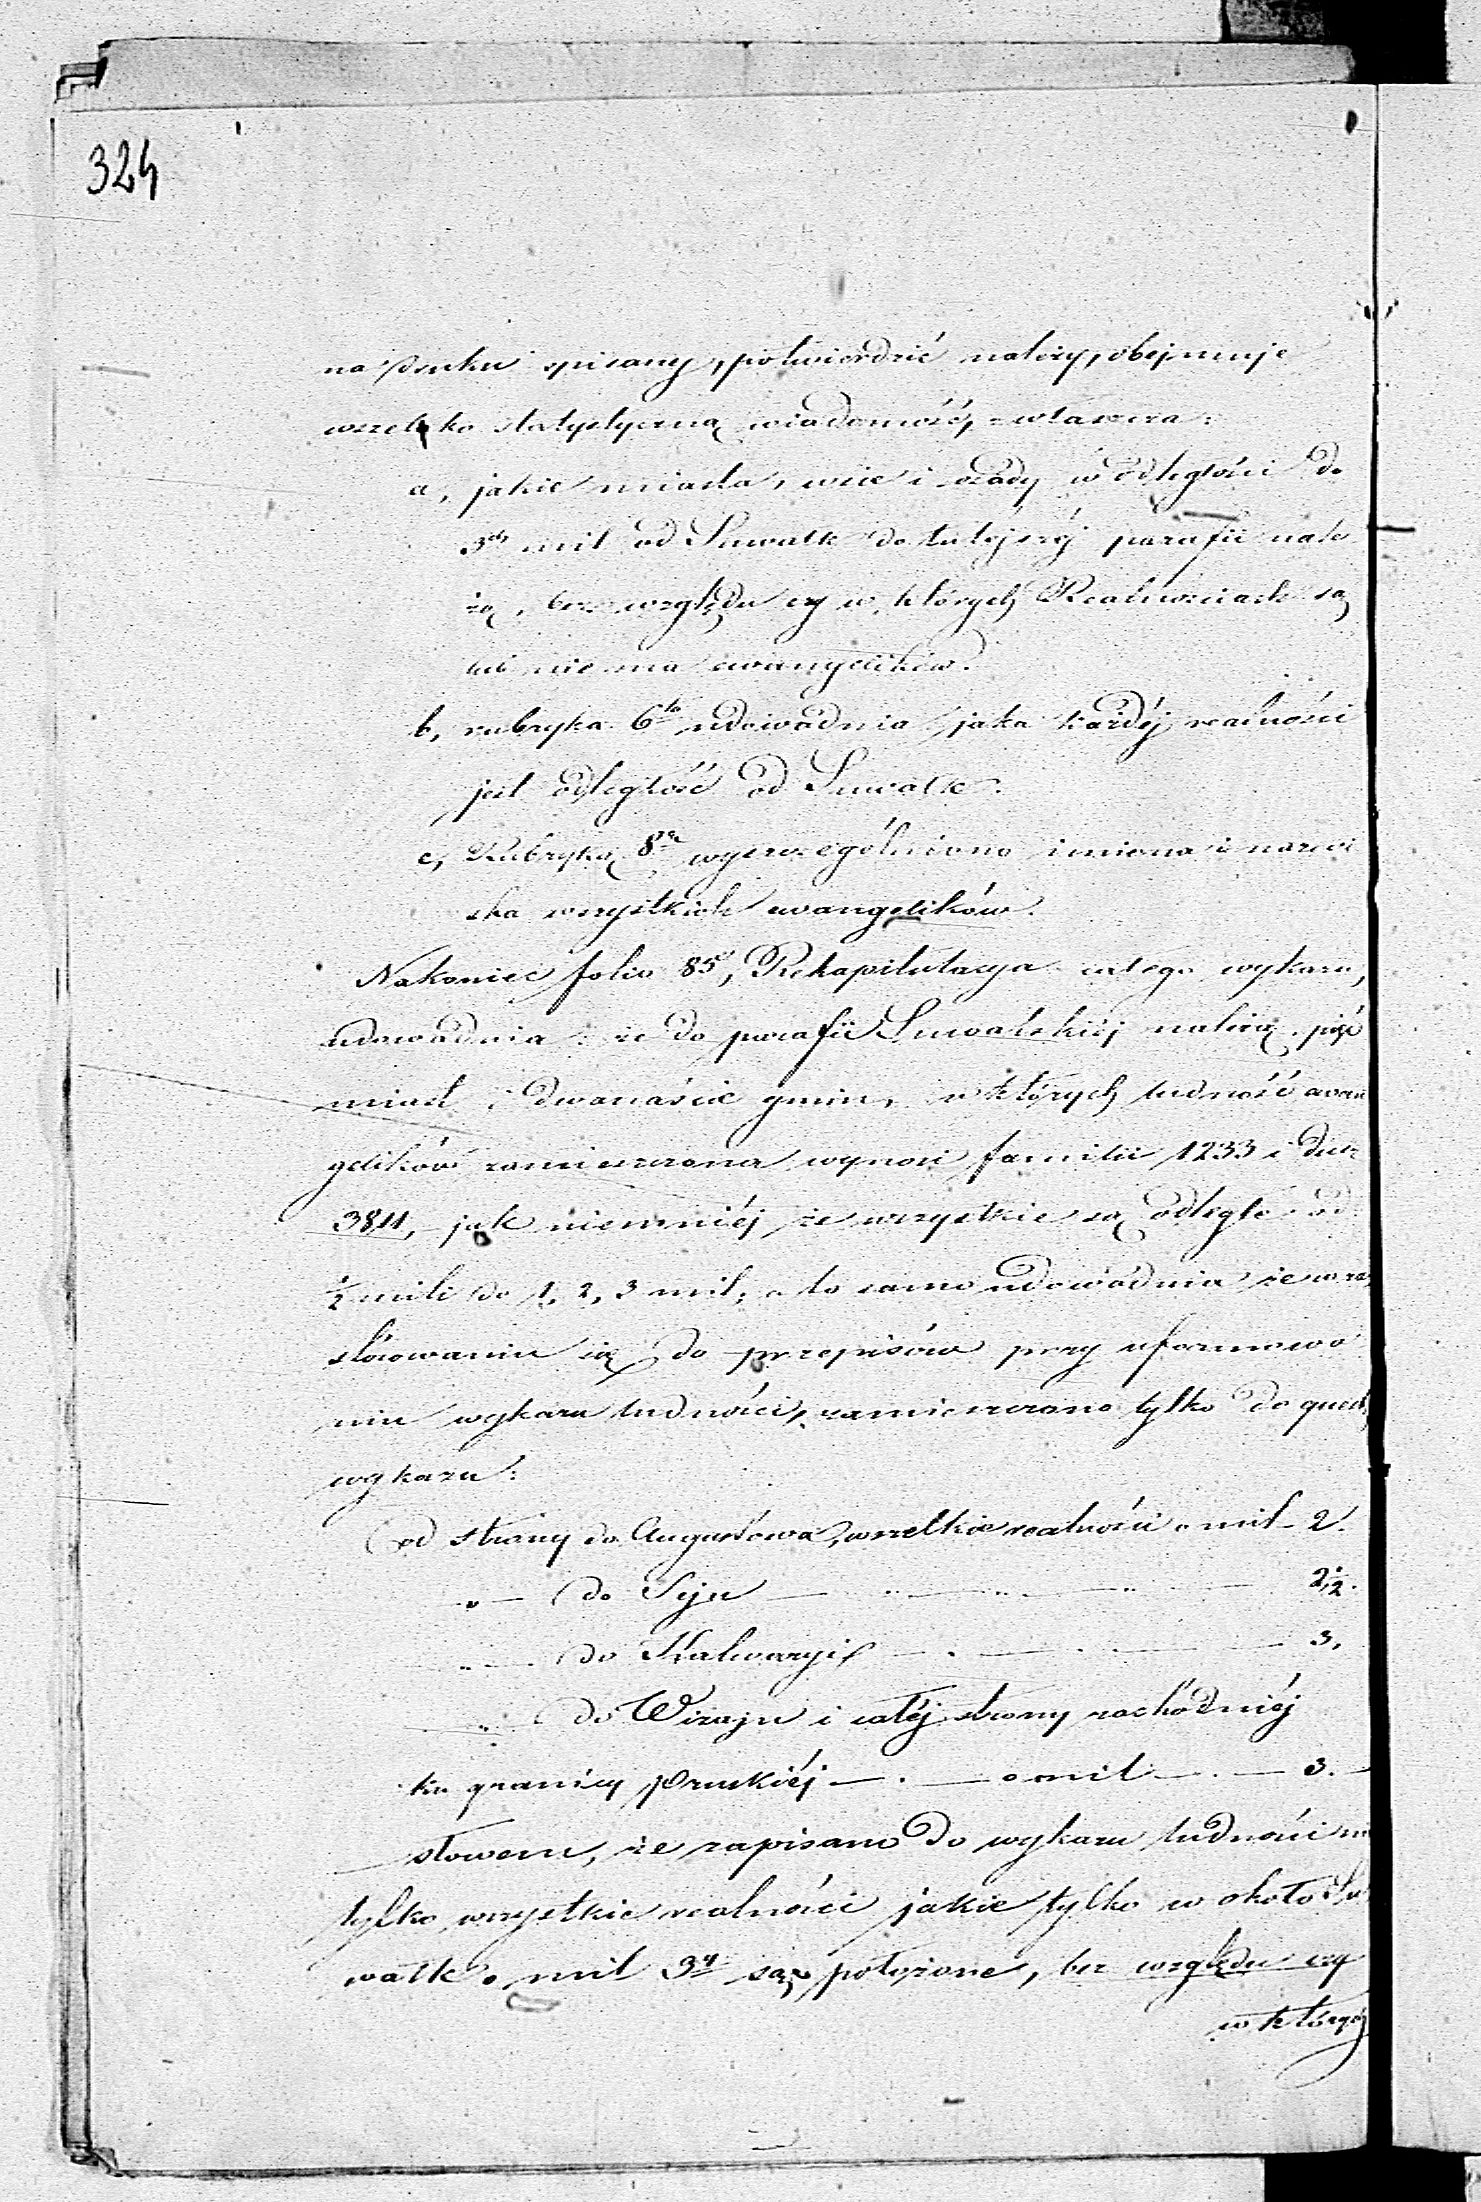 324
na druku spisany, potwierdzić należy, obejmuje
wszelką statystyczną wiadomość, zwłaszcza:
a, jakie miasta, wsie i osady w odległości do
3ch mil od Suwałk do tutéjszéj parafii nale
żą, bez względu czy w których Realnościach są
lub nie ma ewangelików.
b, rubryka 6ta udowadnia jaka każdéj realności
jest odległość od Suwałk.
c, Rubryką 8ą wyszczególniono imiona i nazwi
ska wszystkich ewangelików.
Nakoniec folio 85, Rekapitulacya całego wykazu,
udowadnia: że do parafii Suwalskiéj należą pięć
miast i dwanaście gmin, w których ludność ewan
gelików zamieszczona wynosi familii 1233 i dusz
3811, jak niemniéj że wszystkie są odległe od
½ mili do 1, 2, 3 mil, a to samo udowadnia że w za
stósowaniu się do przepisów przy uformowa
niu wykazu ludności, zamieszczono tylko do
wykazu:
od strony do Augustowa, wszelkie realności o mil 2.
„ — do Sejn — „ — „ — „ — 2½.
„ — do Kalwaryi — „ — „ — 3,
„ do Wiżajn i całéj strony zachodniéj
ku granicy Pruskiéj — . — o mil — . — 3. —
słowem, że zapisano do wykazu ludności
tylko wszystkie realności jakie tylko w około Su
wałk o mil 3y są położone, bez względu czy
w któréj